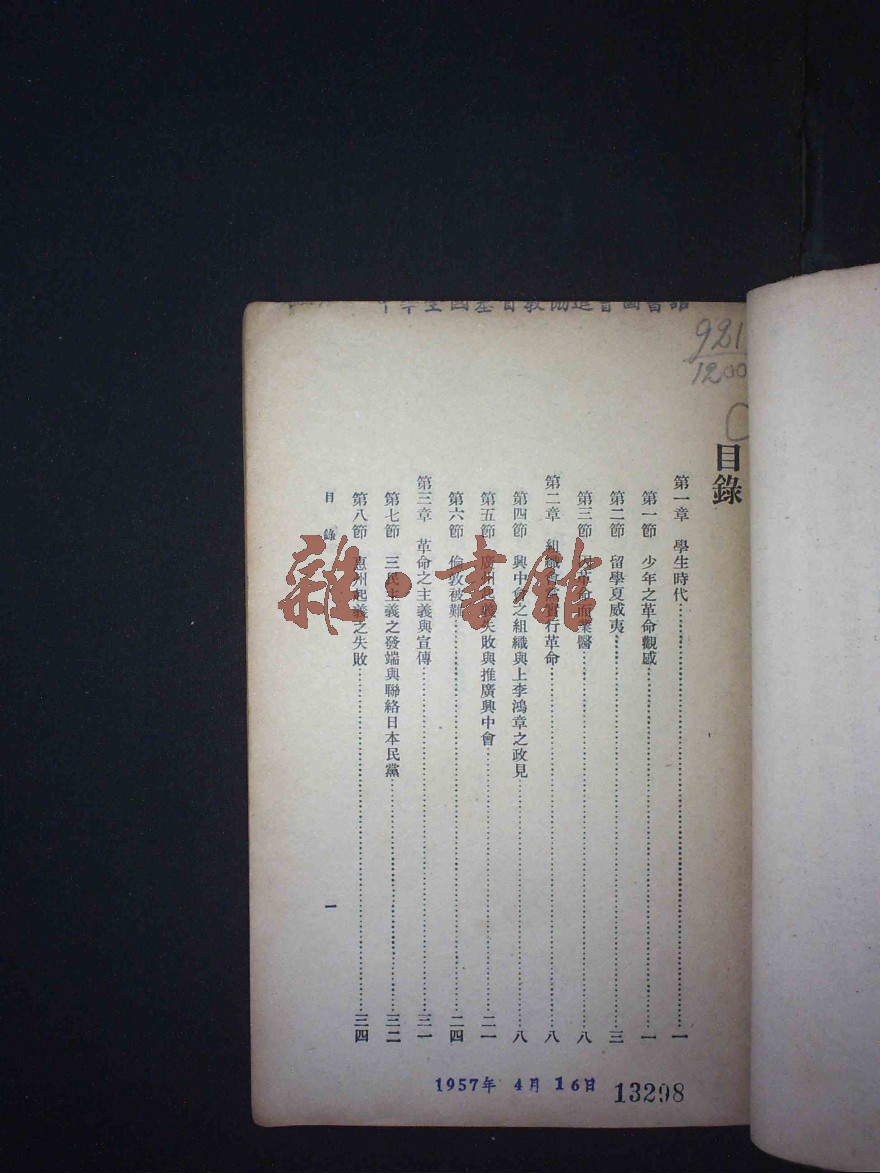 中華全國基督教協進會圖書館
921
1200
C
目錄
第一章 學生時代……一
第一節 少年之革命觀感……一
第二節 留學夏威夷……三
第三節 因革命而業醫……八
第二章 組織會黨實行革命……八
第四節 興中會之組織與上李鴻章之政見……八
第五節 廣州起義失敗與推廣興中會……二一
第六節 倫敦被難……二四
第三章 革命之主義與宣傳……三一
第七節 三民主義之發端與聯絡日本民黨……三二
第八節 惠州起義之失敗……三四
目錄 一
雜·書館
1957年 4月 16日
13298